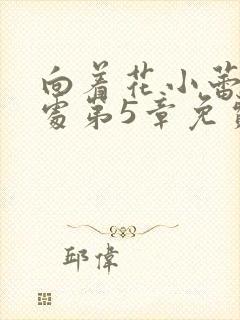 向着花小蕾
处第5章免费
邱偉